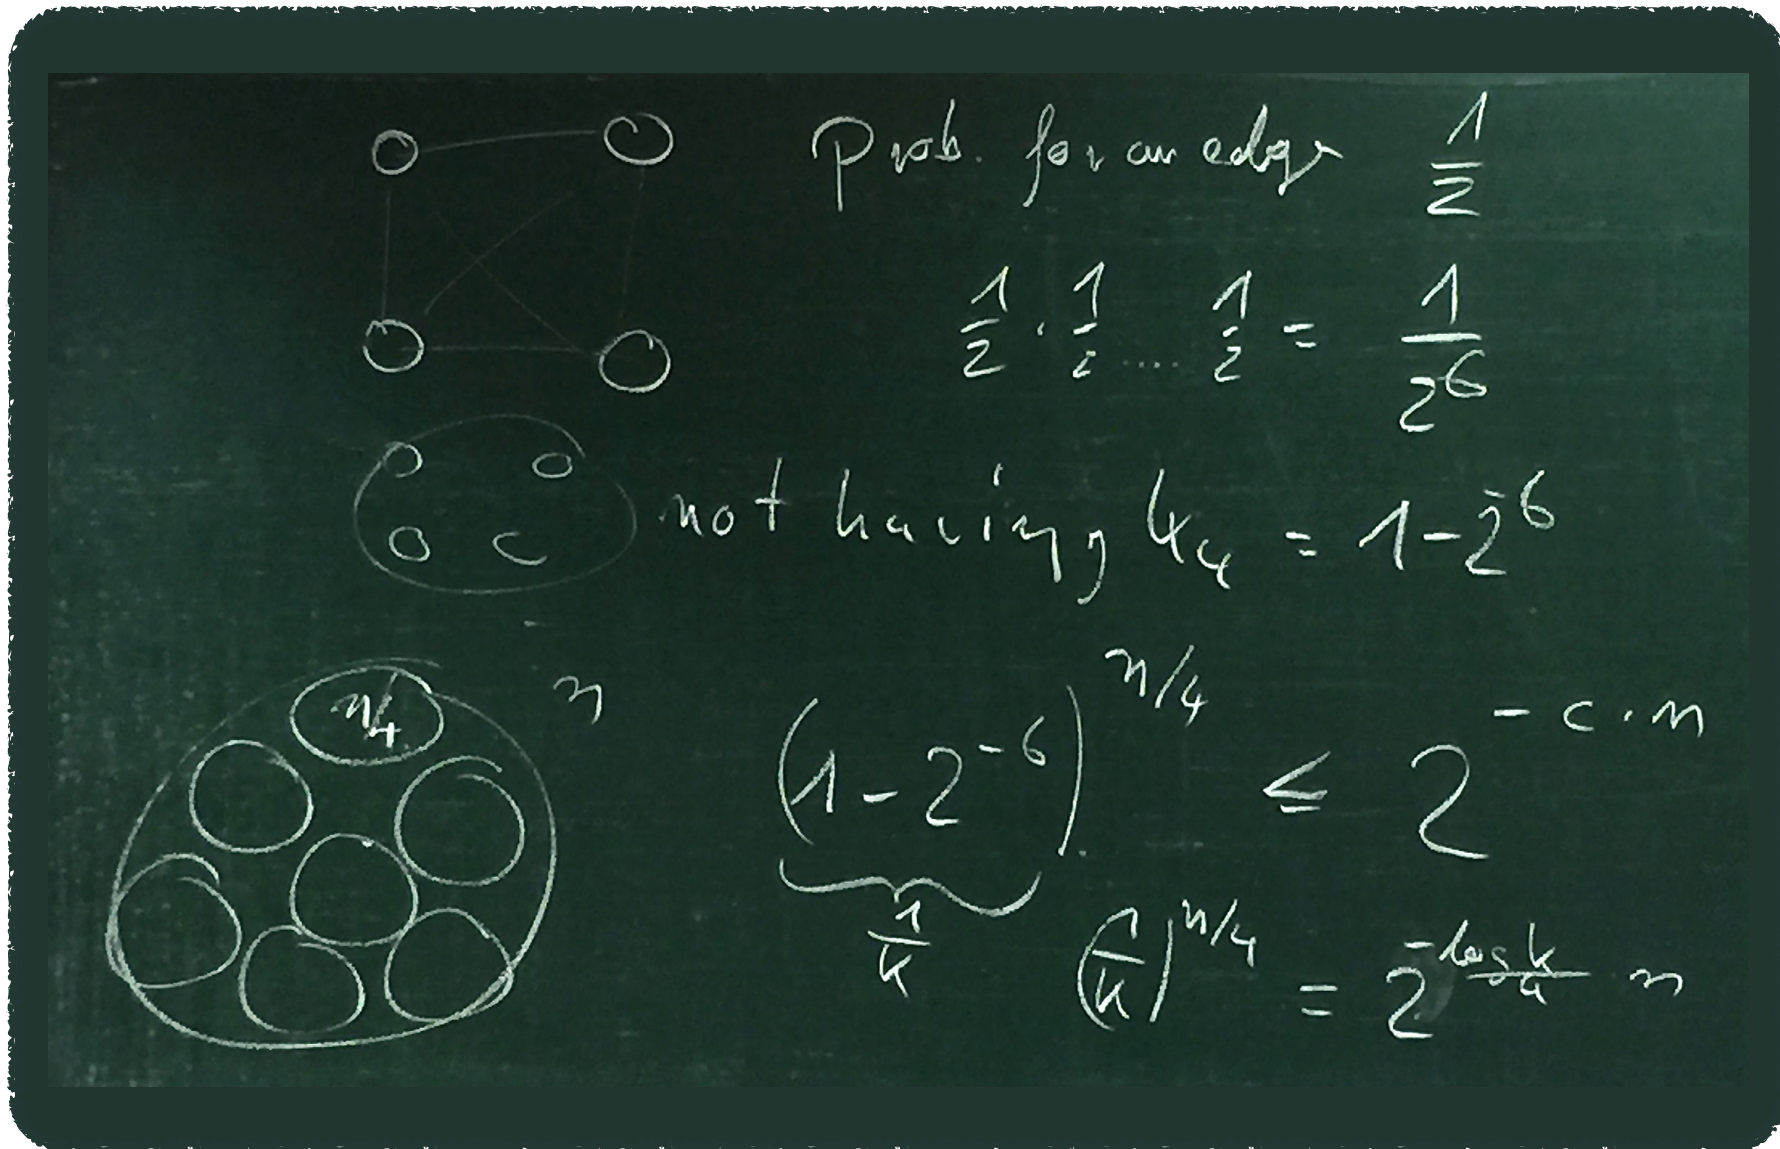 Prob. for an edge 1/2
1/2 · 1/2 .... 1/2 = 1/2^6
not having K_4 = 1-2^-6
n/4 n (1-2^-6)^n/4 ≤ 2^-c·n
1/k (1/k)^n/4 = 2^-log k/4 n